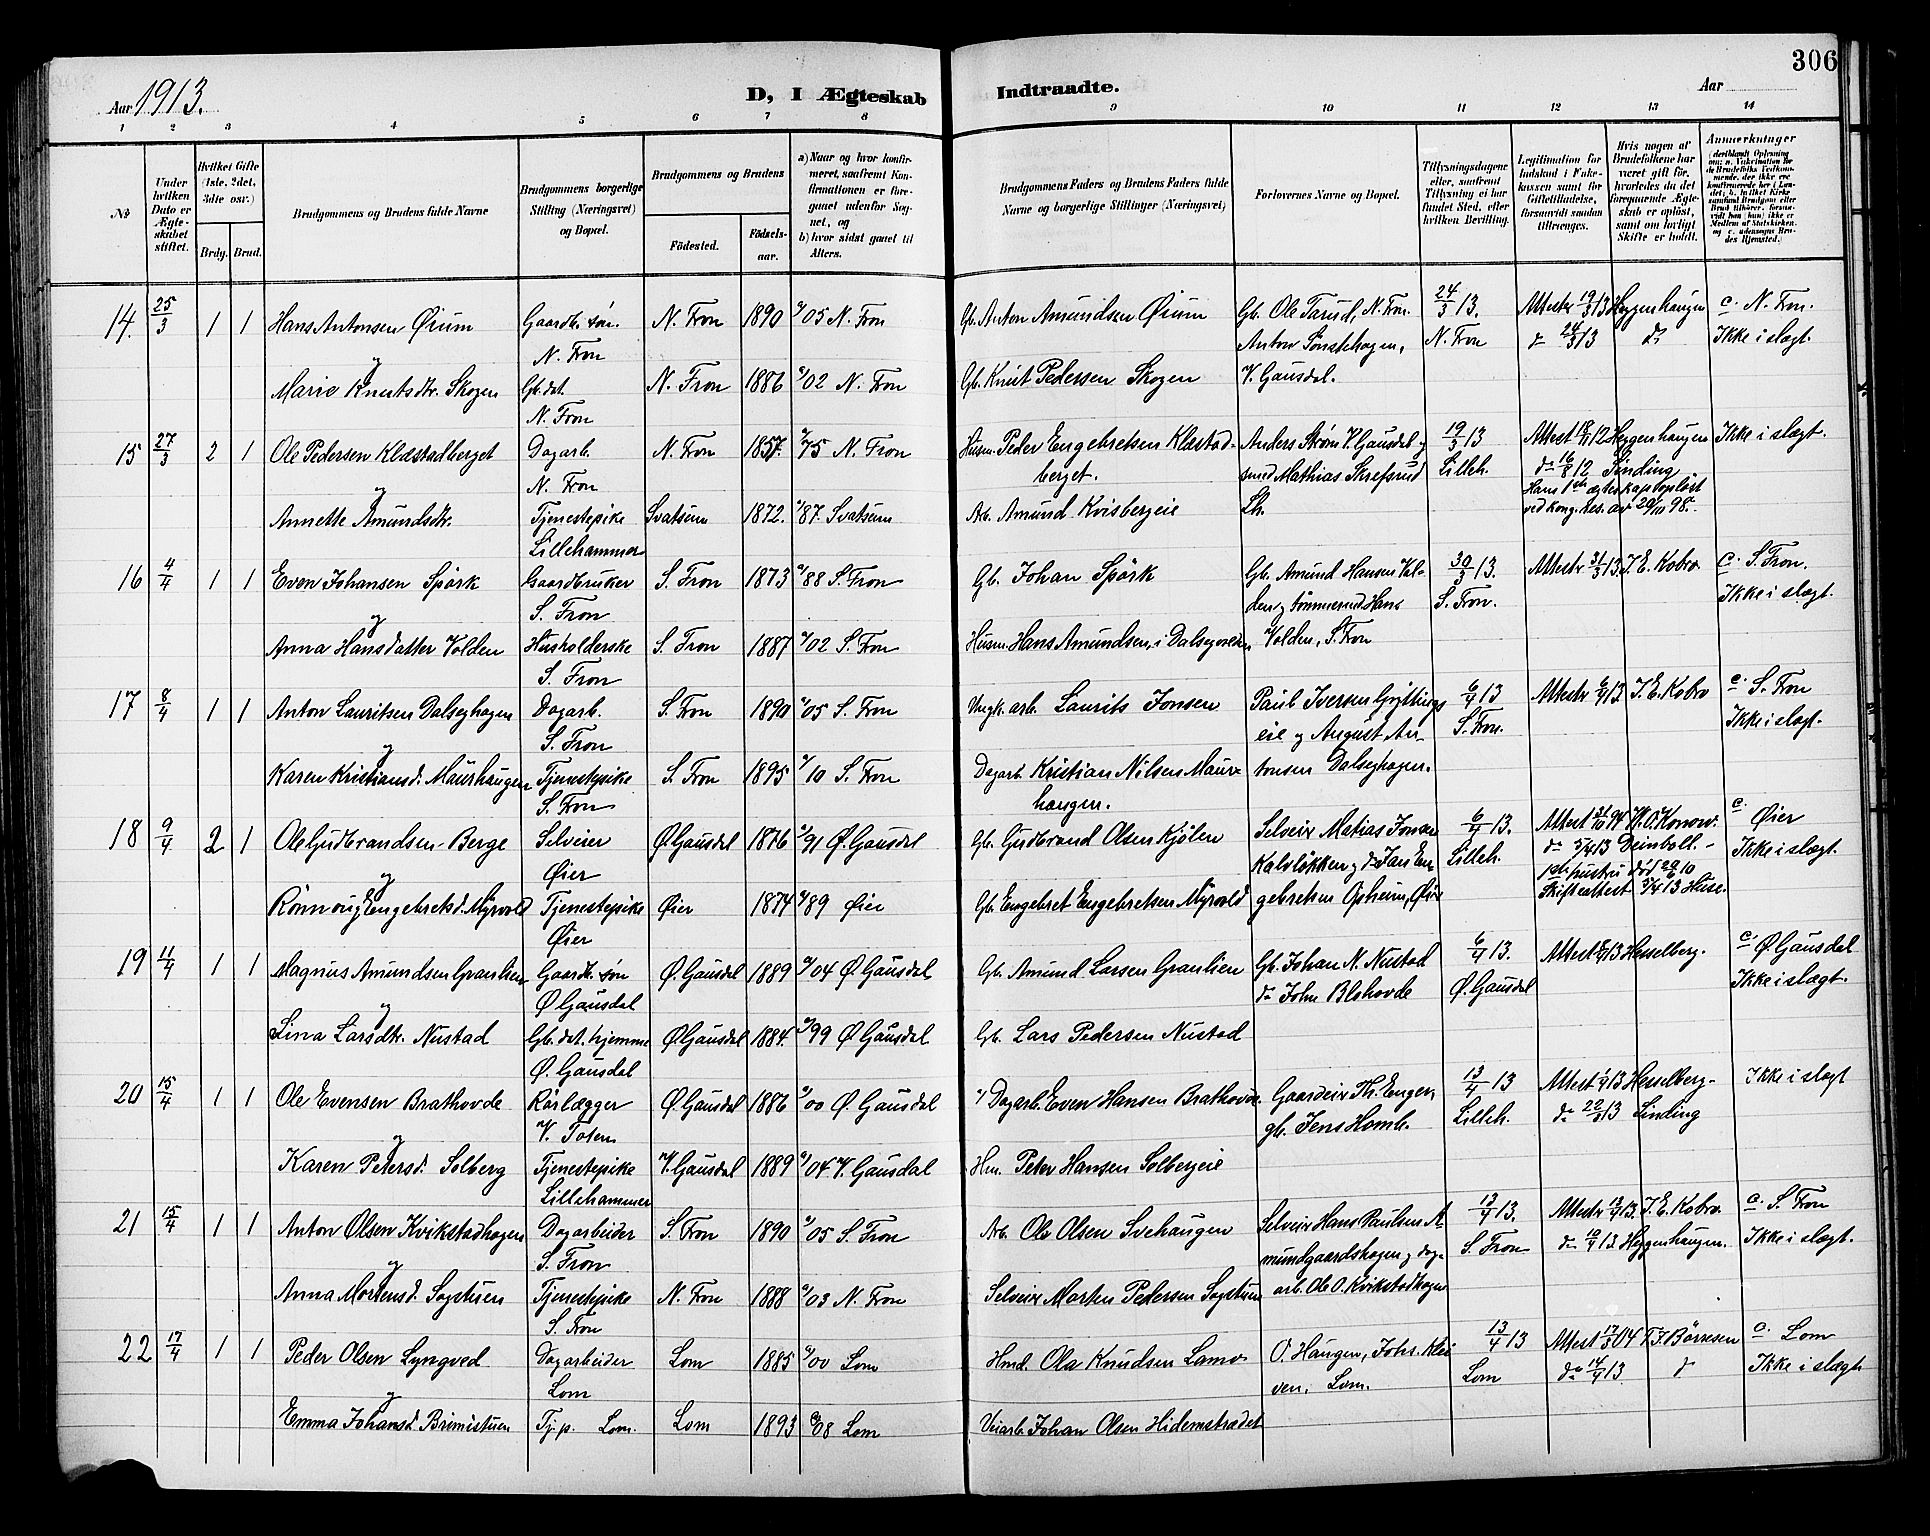 306
Aar 1913.
D, I Ægteskab Indtraadte.
Aar
1 2 3 4 5 6 7 8 9 10 11 12 13 14
No
Under hvilken Dato er Ægteskabet stiftet.
Hvilket Gifte (1ste, 2det, 3die osv.)
Brdg. Brud.
Brudgommens og Brudens fulde Navne
Brudgommens borgerlige Stilling (Næringsvei) og Bopæl.
Brudgommens og Brudens
Födested.
Födselsaar.
a) Naar og hvor konfirmeret, saafremt Konfirmationen er foregaaet udenfor Sognet, og
b) hvor sidst gaaet til Alters.
Brudgommens Faders og Brudens Faders fulde Navne og borgerlige Stillinger (Næringsvei)
Forlovernes Navne og Bopæl.
Tillysningsdagene eller, saafremt Tillysning ei har fundet Sted, efter hvilken Bevilling.
Legitimation for Indskud i Enkekassen samt for Giftetilladelse, forsaavidt saadan tiltrænges.
Hvis nogen af Brudefolkene har været gift för, hvorledes da det foregaaende Ægteskab er oplöst, samt om lovligt Skifte er holdt.
Anmerkninger
14. 25/3 1 1 Hans Antonsen Øium Gaardbr. søn. N. Fron 1890 05 N. Fron Gb. Anton Amundsen Øium Gb. Ole Tarud, N. Fron. 24/3 13. Attestr 19/3 13 Heggenhaugen c. N. Fron.
N. Fron Anton Sønstehagen, N. Fron d 24/3 13 do Ikke i slægt.
y
Marie Knutsdtr. Skogen Gb. dat. N. Fron 1886 02 N. Fron Gb. Knut Pedersen Skogen V. Gausdal.
N. Fron
15 27/3 2 1 Ole Pedersen Klæstadberget Dagarb. N. Fron 1857. 75 N. Fron Husm. Peder Engebretsen Klæstad- Anders Strøm V. Gausdal y 19/3 13 Attest 12 Heggenhaugen Ikke i slægt.
N. Fron berget. smed Mathias Skrefsrud Lilleh. do 16/8 12 Sinding
y Hans 1ste ægteskap opløst
Annette Amundsdtr. Tjenestepike Svatsum 1872. 87. Svatsum Arb. Amund Kvisbergeie Lh. ved kong. res. av 20/11 98.
Lillehammer
16 4/4 1 1 Even Johansen Spörk Gaardbruker S. Fron 1873 88 S. Fron Gb. Johan Spörk Gb. Amund Hansen Vol- 30/3 13. Attestr 31/3 13. J. E. Kobro c. S. Fron.
S. Fron den y tömmermd. Hans S. Fron. Ikke i slægt.
y
Anna Hansdatter Volden Husholderske S. Fron 1887 02 S. Fron Husm. Hans Amundsen, i Dalsegvolden Volden, S. Fron
S. Fron
17 8/4 1 1 Anton Lauritsen Dalseghagen Dagarb. S. Fron 1890 05 S. Fron Ungk. arb. Laurits Jonsen Paul Iversen Gryttings 6/4 13 Attestr 6/4 13. J. E. Kobro c. S. Fron
S. Fron eie y August An- S. Fron. Ikke i slægt.
y
Karen Kristiansd. Maurhaugen Tjenestepike S. Fron 1895 10 S. Fron Dagarb. Kristian Nilsen Maur- tonsen Dalseghagen.
S. Fron haugen.
18 9/4 2 1 Ole Gudbrandsen Berge Selveier Ø. Gausdal 1876 91 Ø. Gausdal Gb. Gudbrand Olsen Kjölen Selveier Matias Jonsen 6/4 13. Attest 94 W. O. Konow. c. Øier
Øier Kalvlökken y do Jan En- Lilleh. do 5/4 13 Deinboll. Ikke i slægt.
y 1ste hustru död 10
Rönnoug Engebretsd. Myrvold Tjenestepike Øier 1874 89 Øier Gb. Engebret Engebretsen Myrvold gebretsen Opheim, Øier Skifteattest 5/4 13 Huse.
Øier
19 11/4 1 1 Magnus Amundsen Granlien Gaardb. søn Ø. Gausdal 1889 04 Ø. Gausdal Gb. Amund Larsen Granlien Gb. Johan N. Nustad 6/4 13. Attest 13 Hesselberg. c. Ø. Gausdal
Ø. Gausdal do John Blshovde Ø. Gausdal Ikke i slægt.
y
Lina Larsdtr. Nustad Gb. dat. hjemme Ø. Gausdal 1884. 99 Ø. Gausdal Gb. Lars Pedersen Nustad
Ø. Gausdal
20 15/4 1 1 Ole Evensen Brathovde Rörlægger Ø. Gausdal 1886 00 Ø. Gausdal Dagarb. Even Hansen Brathovde Gaardeier Th. Enger, 13/4 13 Attest 13 Hesselberg. Ikke i slægt
V. Toten gb. Jens Homb. Lilleh. do 22/3 13 Sinding
y
Karen Petersd. Solberg Tjenestepike V. Gausdal 1889 04 V. Gausdal Hm. Peter Hansen Solbergeie
Lillehammer
21 15/4 1 1 Anton Olsen Kvikstadhagen Dagarbeider S. Fron 1890 05 S. Fron Arb. Ole Olsen Svehaugen Selveier Hans Paulsen A- 13/4 13. Attestr 13/4 13. J. E. Kobro. c. S. Fron
S. Fron mundgaardshagen y dag- S. Fron do 10/4 13. Heggenhaugen. Ikke i slægt.
y
Anna Mortensd. Sagstuen Tjenestepike N. Fron 1888 03 N. Fron Selveier Morten Pedersen Sagstuen arb. Ole O. Kvikstadhagen
S. Fron
22 17/4 1 1 Peder Olsen Lyngved Dagarbeider Lom 1885 00 Lom Hmd. Ola Knudsen Lamo O. Haugen, Johs. Klei- 13/4 13 Attest 04 T. F. Börresen c. Lom
Lom ven. Lom. Lom do 14/4 13. d Ikke i slægt
y
Emma Johansd. Brimistuen Tj. p. Lom. Lom 1893 08 Lom Veiarb. Johan Olsen Hidemstrædet